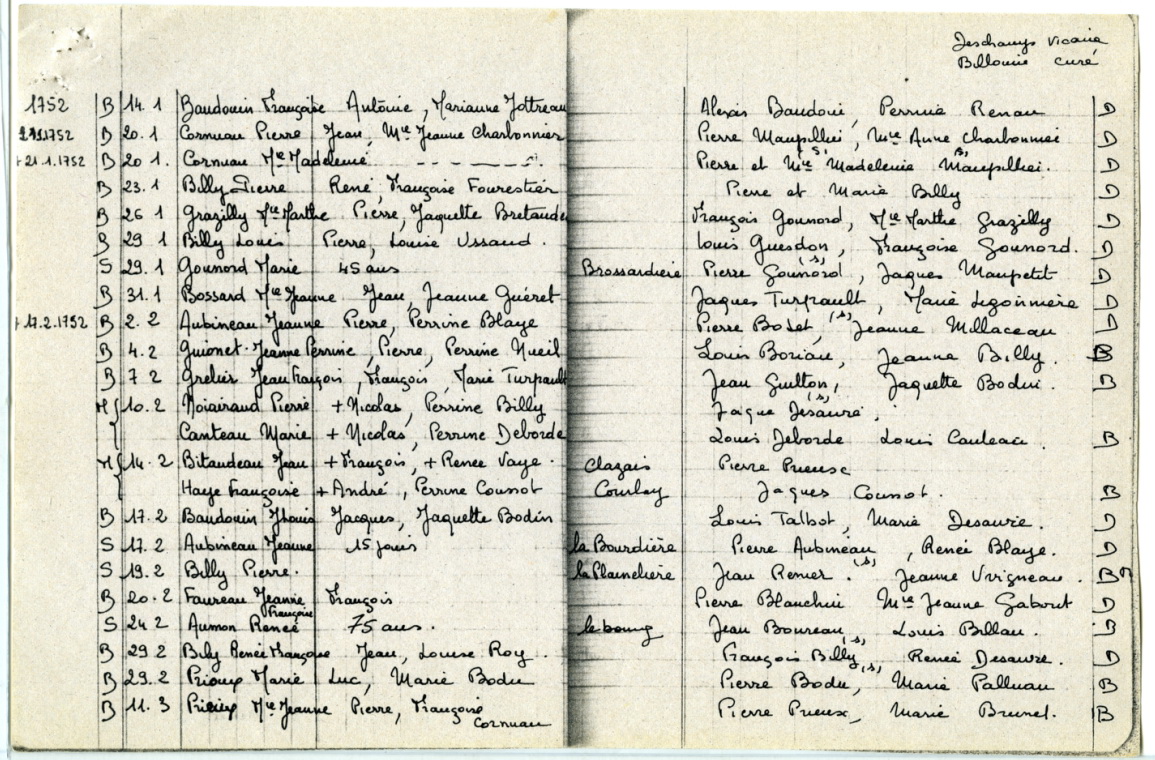 Deschamps Vicaire
Billonnie curé
1752 B 14.1 Baudouin Françoise Antoine, Marianne Jottreau Alexis Baudoui, Perrine Renau D
B 20.1 Cornuau Pierre Jean, Mie Jeanne Charbonnier Pierre Maupillui, Mie Anne Charbonnei D
+ 21.1.1752 B 20 1. Cornuau Mie Madeleine Pierre et Mie (s) Madeleine (s) Maupilhei. D
B 23.1 Billy Pierre René, Françoise Fourestier Pierre et Marie Billy D
B 26 1 Grazilly Mie Marthe Pierre, Jaquette Bretaude François Gounord, Mie Marthe Grazilly D
B 29 1 Billy Louis Pierre, Louise Ussaud. Louis Guesdon, Françoise Gounord. D
S 29.1 Gounord Marie 45 ans Brossardière Pierre Gounord (s), Jaques Maupetit D
B 31.1 Bossard Mie Jeanne Jean, Jeanne Guéret Jaques Turpault, Marie Legonnière D
+ 17.2.1752 B 2.2 Aubineau Jeanne Pierre, Perrine Blaye Pierre (s) Jeanne Millaceau D
B 4.2 Guionet Jeanne Perrine, Pierre, Perrine Nueil Louis Boriau, Jeanne Billy. B
B 7 2 Grelier Jean François, François, Marie Turpault Jean Guilton, Jaquette Bodui. B
M 10.2 Noiairaud Pierre + Nicolas, Perrine Billy Jaque Desaure (s),
Canteau Marie + Nicolas, Perrine Deborde Louis Deborde Louis Cauteau. B
M 14.2 Bitaudeau Jean + François, + Renée Vaye. Clazais Pierre Prieux
Haye Françoise + André, Perrine Coussot Courlay Jaques Coussot. B
B 17.2 Baudouin Jacques, Jaquette Bodin Louis Talbot, Marie Desaure. D
S 17.2 Aubineau Jeanne 15 jours la Bourdière Pierre Aubineau, Renée Blaye. D
S 19.2 Billy Pierre. la Plainelière Jean Renier (s). Jeanne Vrigneau. B
B 20.2 Faureau Jeanne Françoise François Pierre Blanchin Mie Jeanne Gabout D
S 24 2 Aumon Renée 75 ans. le bourg Jean Boureau, Louis Billau. B
B 29 2 Bily Renée Françoise Jean, Louise Roy. François Billy (s), Renée Desaure. D
B 29.2 Prioux Marie Luc, Marie Bodu Pierre Bodu (s), Marie Palluau B
B 11.3 Prieux Mie Jeanne Pierre, Françoise Cornuau Pierre Prieux, Marie Brunet. B